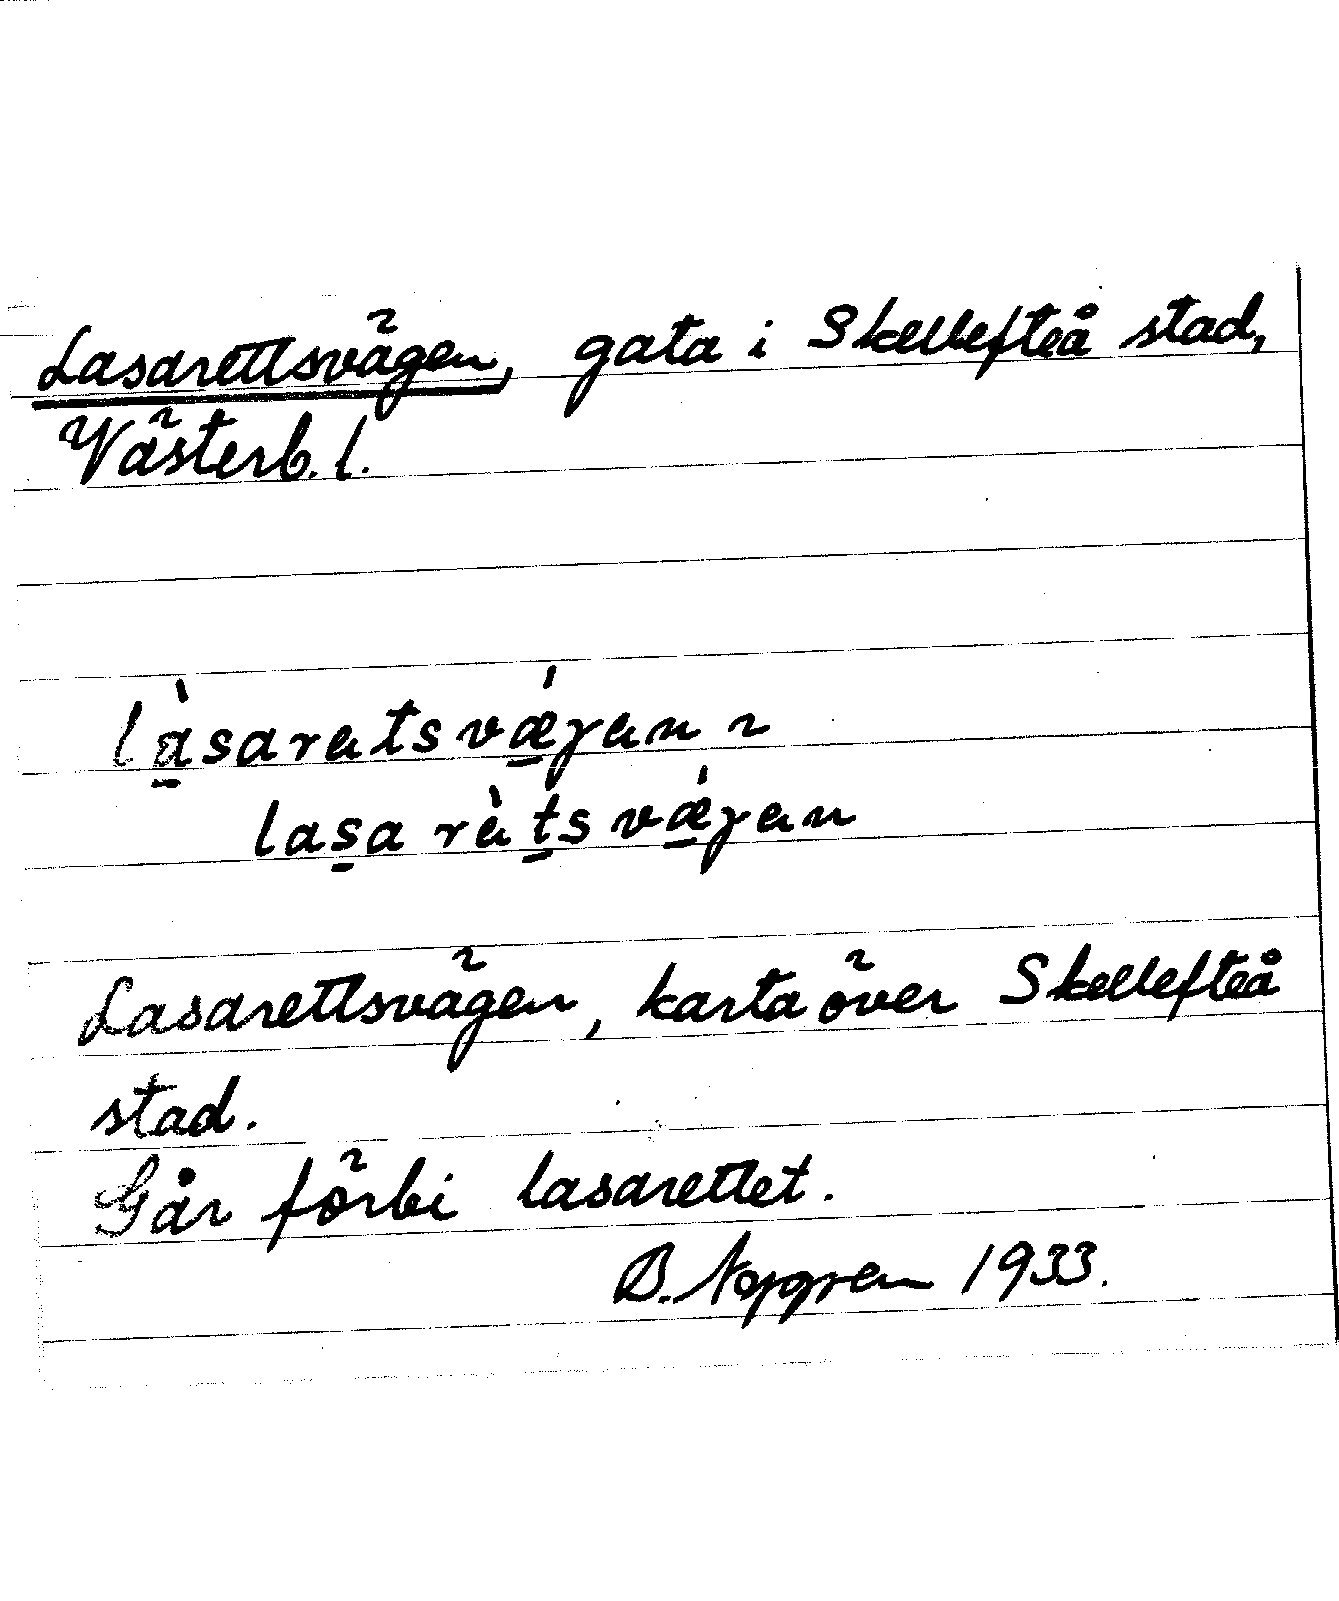 Lasarettsvägen, gata i Skellefteå stad,
Västerb. l.
là̱saratsvǽ̱gan ~
las̱a ràṯsvǽ̱gan
Lasarettsvägen, karta över Skellefteå
stad.
Går förbi lasarettet.
B. 1933.